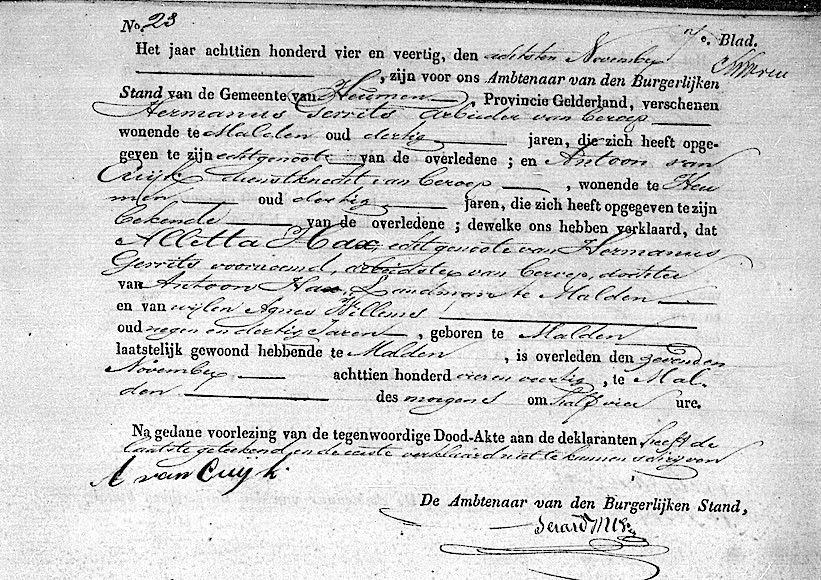 No. 23
7e. Blad.
Het jaar achttien honderd vier en veertig, den achtsten November
, zijn voor ons Ambtenaar van den Burgerlijken
Stand van de Gemeente van Heumen Provincie Gelderland, verschenen
Hermanus Gerrits arbeider van beroep
wonende te Malden oud dertig jaren, die zich heeft opge-
geven te zijn echtgenoote van de overledene ; en Antoon van
Cuijk dienstknecht van beroep , wonende te Heu
men oud dertig jaren, die zich heeft opgegeven te zijn
bekende van de overledene ; dewelke ons hebben verklaard, dat
Alletta Hax, echtgenoote van Hermanus
Gerrits voornoemd, arbeidster van beroep, dochter
van Antoon Hax, Landman te Malden
en van wijlen Agnes Willems
oud negen en dertig Jaren , geboren te Malden
laatstelijk gewoond hebbende te Malden , is overleden den zevenden
November achttien honderd vier en veertig , te Mal-
den des morgens om half vier ure.
Na gedane voorlezing van de tegenwoordige Dood-Akte aan de deklaranten heeft de
laatste geteekend, en de eerste verklaard niet te kunnen schrijven
A van Cuijk
De Ambtenaar van den Burgerlijken Stand,